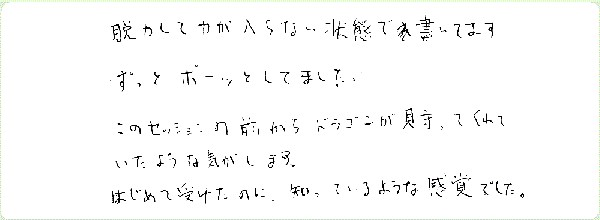 脱力して力が入らない状態で書いてます
ずっと ボーッとしてました。
このセッションの前からドラゴンが見守ってくれて
いたような気がします。
はじめて受けたのに、知っているような感覚でした。